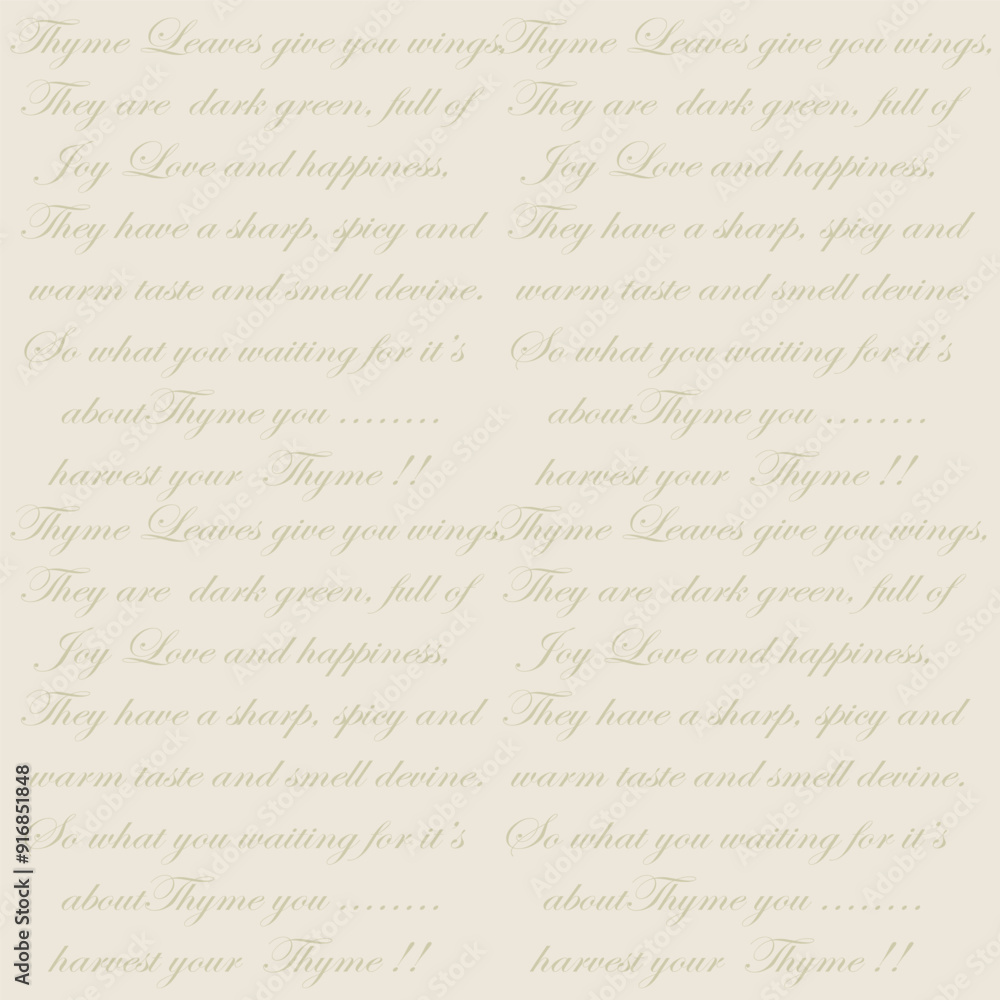 Thyme Leaves give you wings. Thyme Leaves give you wings.
They are dark green, full of They are dark green, full of
Joy Love and happiness, Joy Love and happiness,
They have a sharp, spicy and They have a sharp, spicy and
warm taste and smell devine. warm taste and smell devine.
So what you waiting for it's So what you waiting for it's
about Thyme you ........ about Thyme you ........
harvest your Thyme !! harvest your Thyme !!
Thyme Leaves give you wings. Thyme Leaves give you wings.
They are dark green, full of They are dark green, full of
Joy Love and happiness, Joy Love and happiness,
They have a sharp, spicy and They have a sharp, spicy and
warm taste and smell devine. warm taste and smell devine.
So what you waiting for it's So what you waiting for it's
about Thyme you ........ about Thyme you ........
harvest your Thyme !! harvest your Thyme !!
Adobe Stock | #916851848